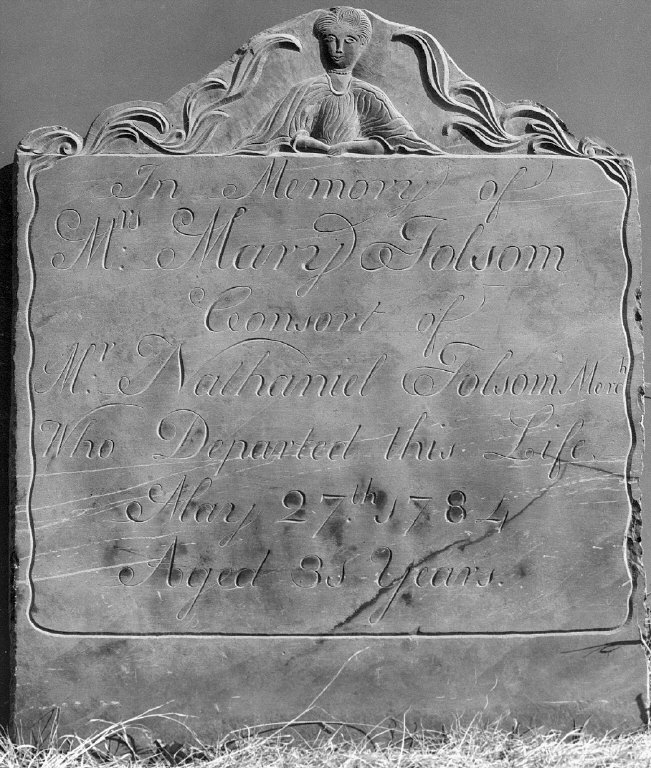 In Memory of
Mrs. Mary Folsom
Consort of
Mr. Nathaniel Folsom Merch
Who Departed this Life
May 27.th 1784
Aged 31 Years.